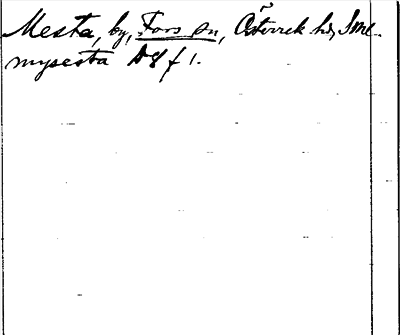 Mesta, by, Fors sn, Österrek hd, Sml.
mysesta D8 f 1.